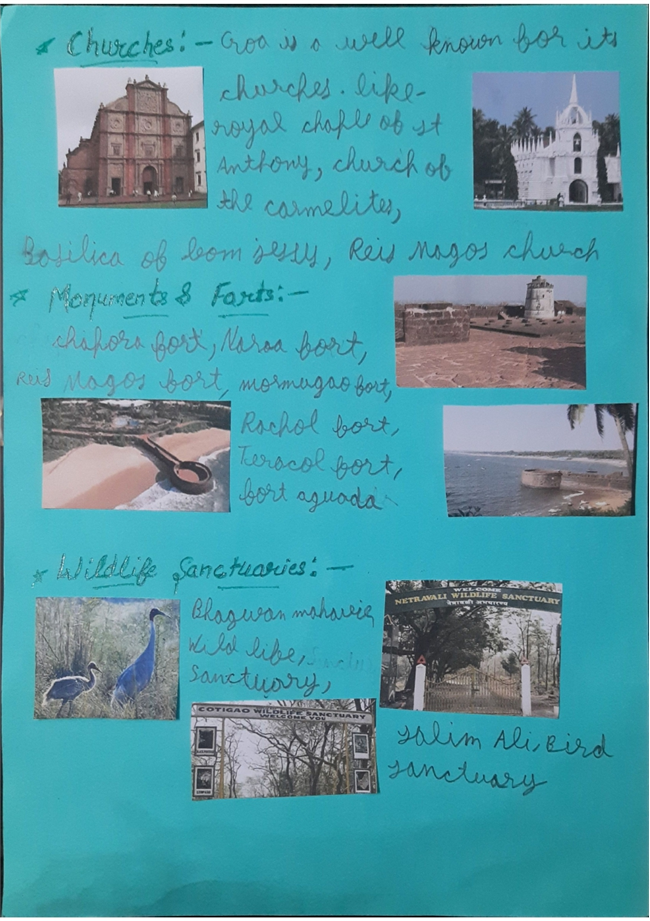 * Churches:- Goa is a well known for its
churches. like-
royal chaple of st
Anthony, church of
the carmelites,
Basilica of bom jessy, Reis Magos church
* Monuments & Farts:-
chapora fort, Naroa fort,
Reis Magos fort, mormugao fort,
Rachol fort,
Teracol fort,
fort aguada
* Wildlife Sanctuaries:-
Bhagwan mahavir
Wild life,
Sanctuary,
WELCOME
NETRAVALI WILDLIFE SANCTUARY
नेत्रावली अभयारण्य
COTIGAO WILDLIFE SANCTUARY
WELCOME YOU
Salim Ali, Bird
sanctuary